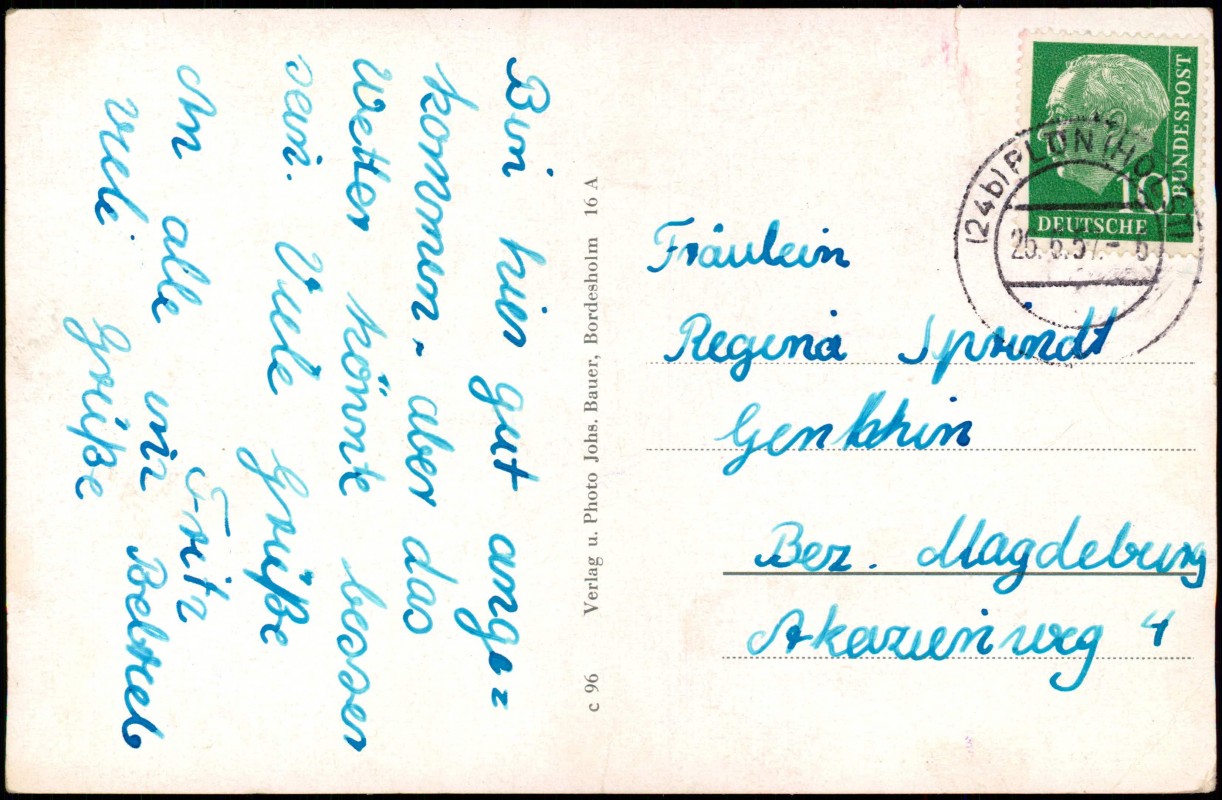 Bin hier gut ange=
kommen, aber das
Wetter könnte besser
sein. Viele Grüße
Fritz
An alle im Betrieb
viele Grüße
c 96 Verlag u. Photo Johs. Bauer, Bordesholm 16 A
BUNDESPOST
10
DEUTSCHE
(24b) PLÖN (HOLST)
Fräulein
Regina
Genthin
Bez. Magdeburg
Akazienweg 4